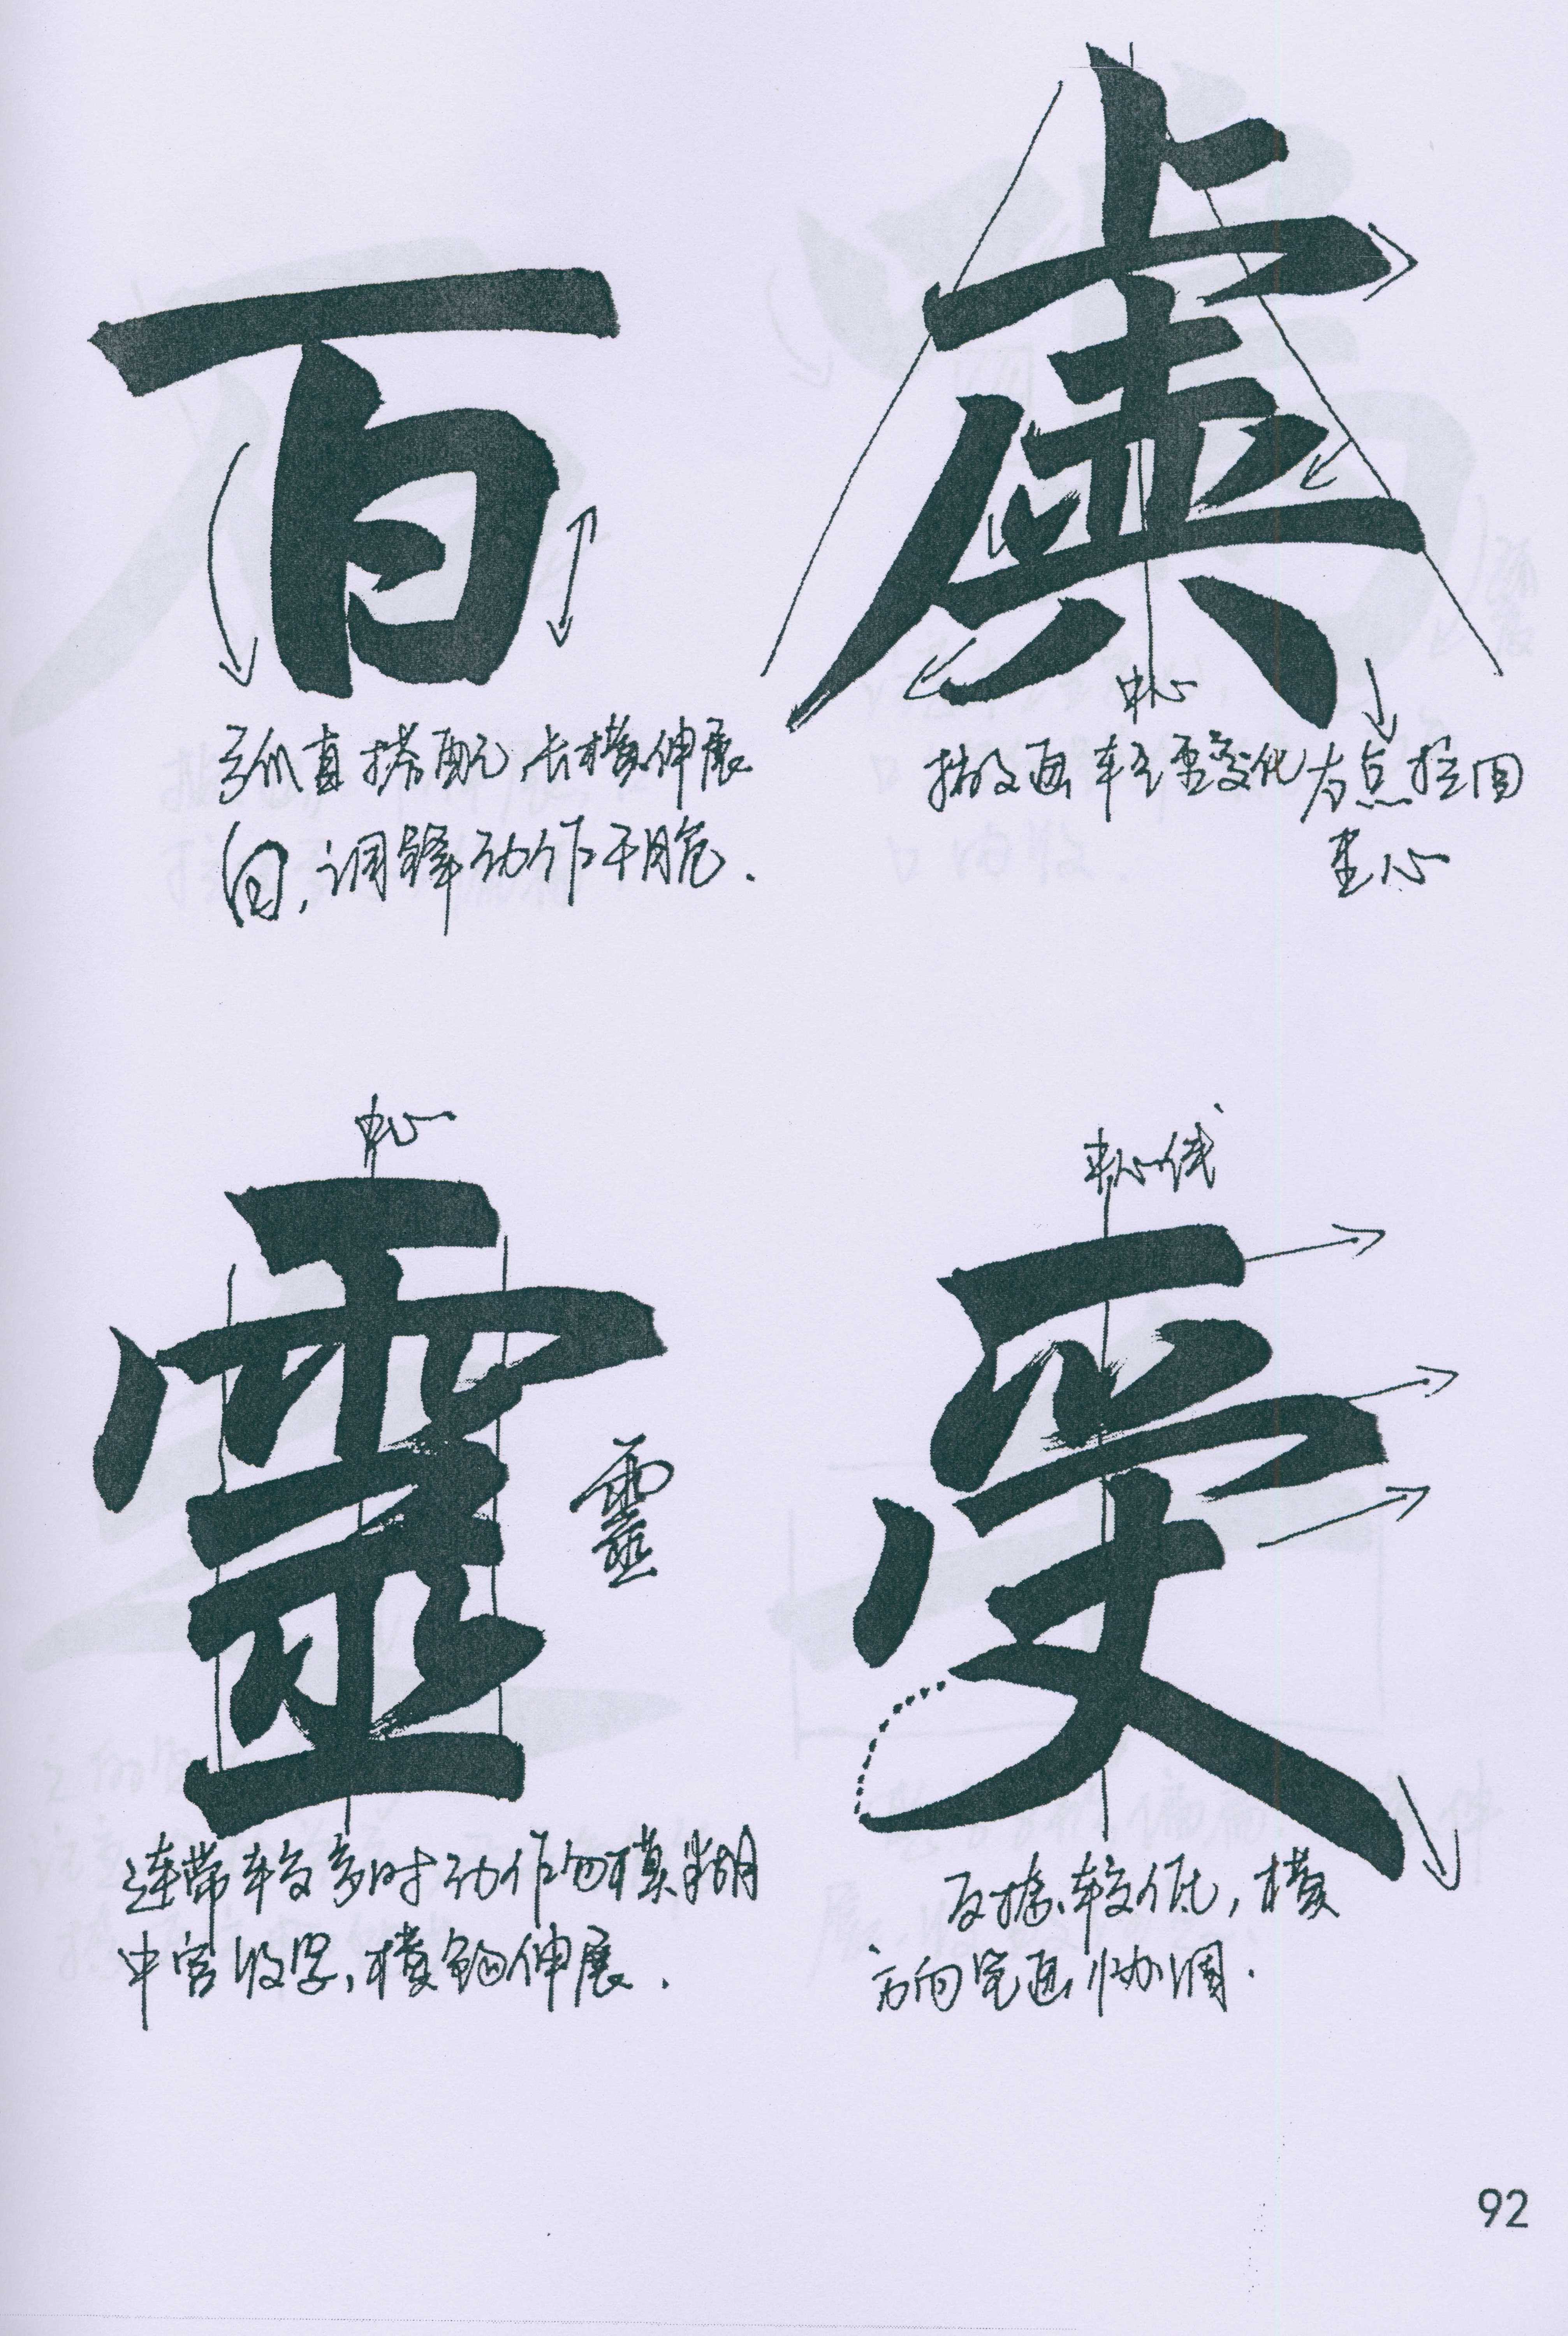 百
弧直搭配,长横伸展
白,调锋动作干脆.
虚
中心
撇收画轻重变化 右点控固
重心
中心
靈
靈
连带较多时动作勿模糊
中宫收紧,横钩伸展.
中心线
受
反捺较低,横
方向笔画协调.
92